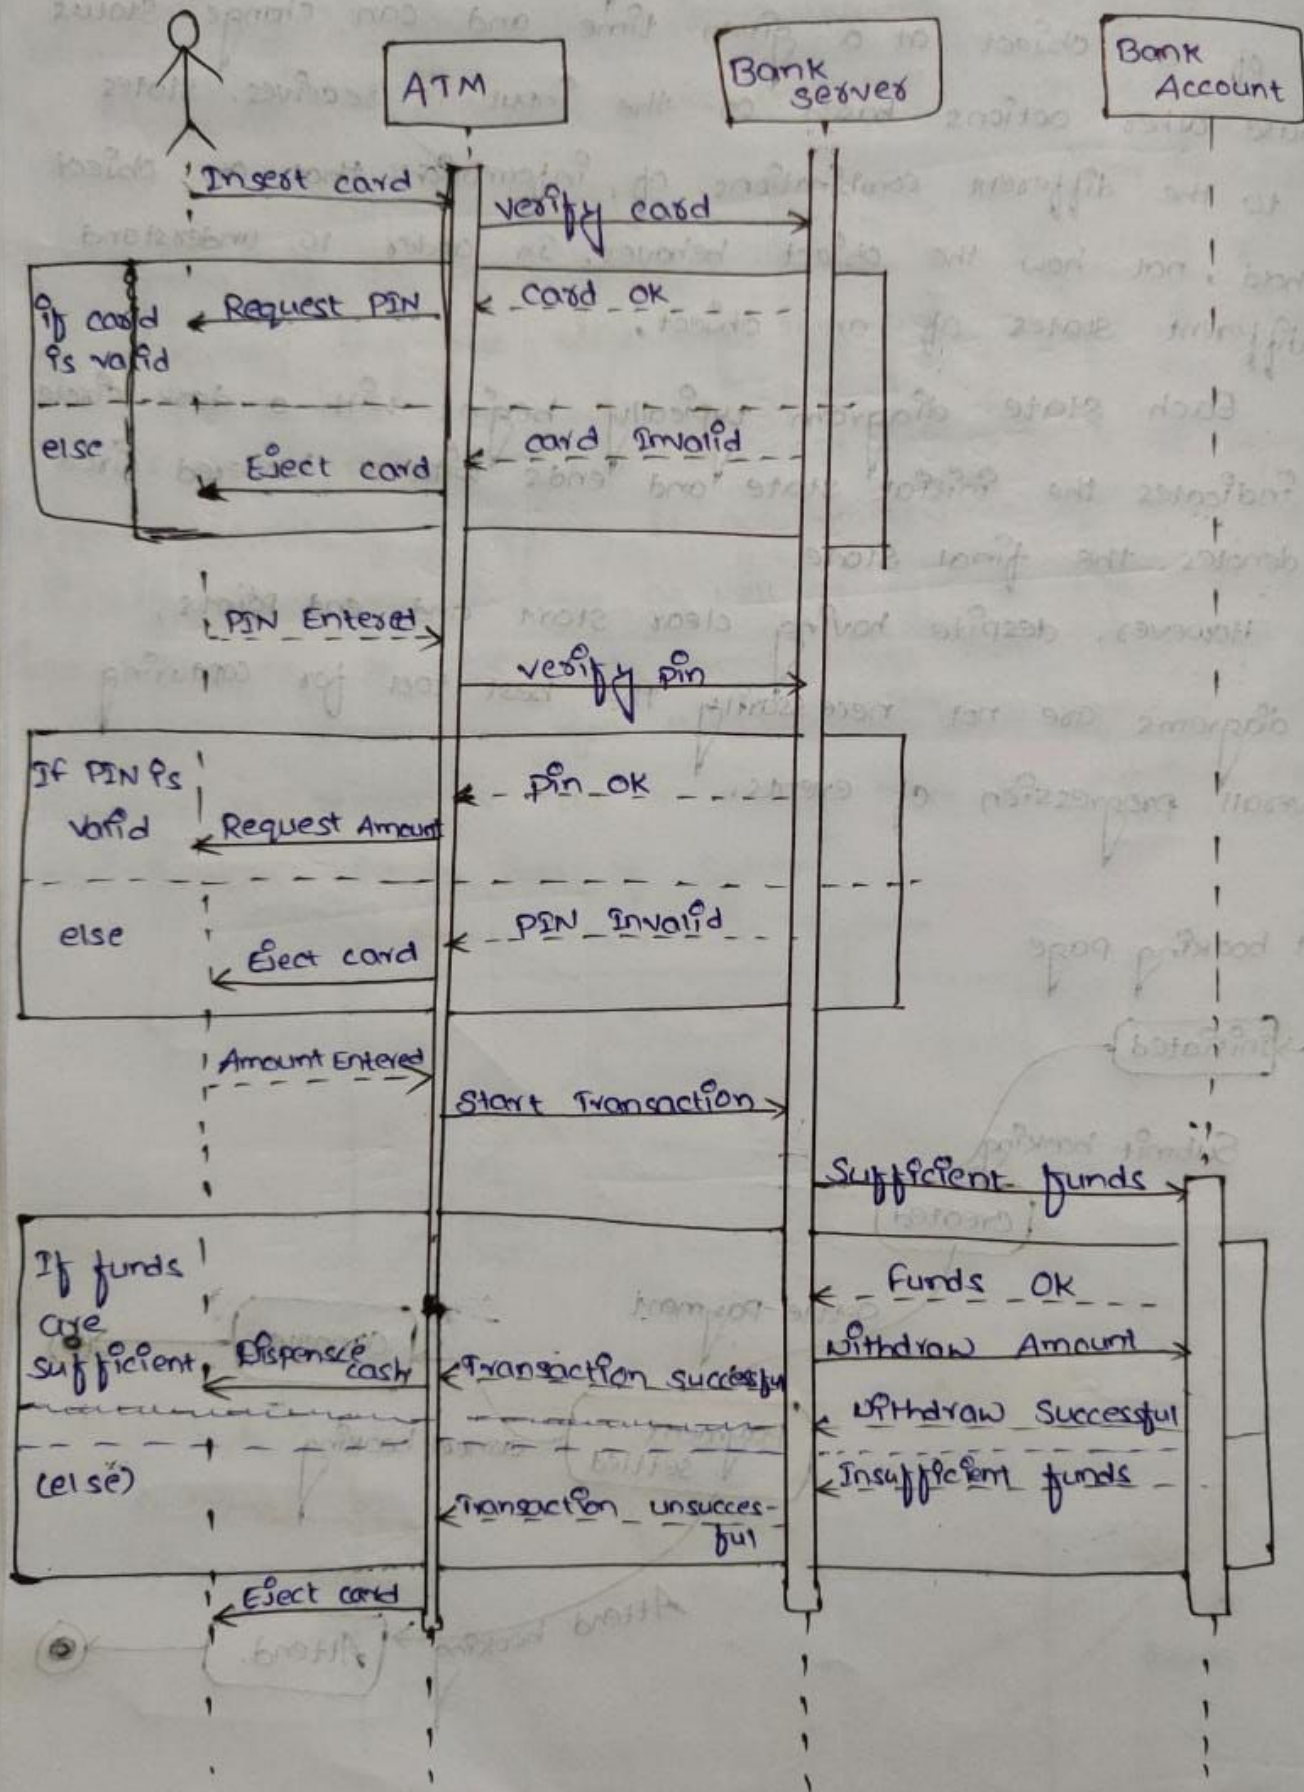 ATM
Bank
server
Bank
Account
Insert card
verify card
if card
is valid
Request PIN
card ok
else
card Invalid
Eject card
PIN Entered
verify pin
If PIN is
valid
pin ok
Request Amount
else
PIN Invalid
Eject card
Amount Entered
Start Transaction
Sufficient funds
If funds
are
sufficient
Funds OK
Withdraw Amount
Dispense
cash
Transaction successful
Withdraw Successful
(else)
Insufficient funds
Transaction unsucces-
ful
Eject card